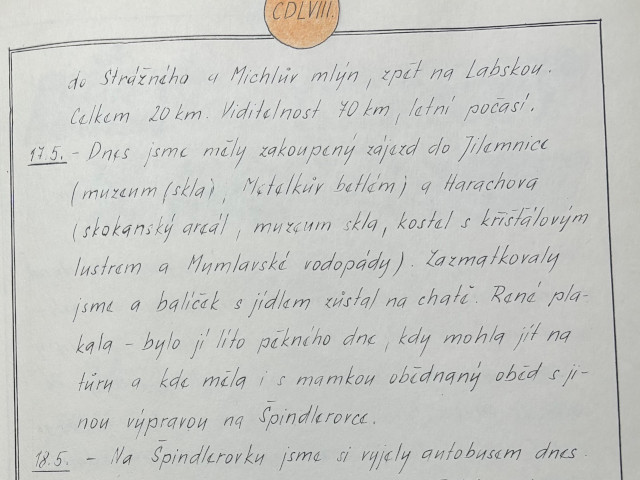 CDLVIII.
do Strážného a Michlův mlýn, zpět na Labskou.
Celkem 20 km. Viditelnost 70 km, letní počasí.
17.5. - Dnes jsme měly zakoupený zájezd do Jilemnice
(muzeum (skla), Metelkův betlém) a Harachova
(skokanský areál, muzeum skla, kostel s křišťálovým
lustrem a Mumlavské vodopády). Zazmatkovaly
jsme a balíček s jídlem zůstal na chatě. René pla-
kala - bylo jí líto pěkného dne, kdy mohla jít na
túru a kde měla i s mamkou obědnaný oběd s ji-
nou výpravou na Špindlerovce.
18.5. - Na Špindlerovku jsme si vyjely autobusem dnes.